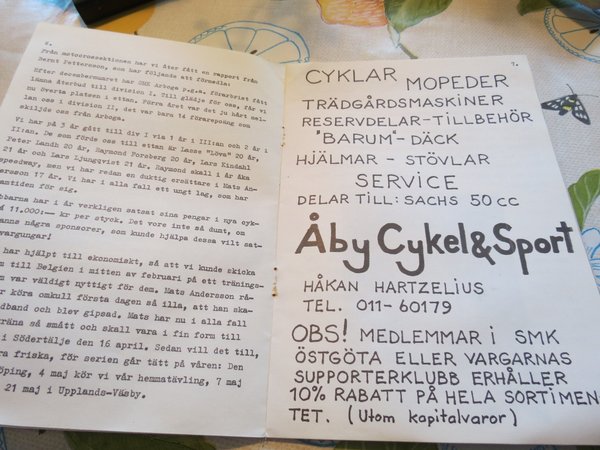 6.
Från motocrosssektionen har vi åter fått en rapport från
Bernt Pettersson, som har följande att förmedla:
Efter decembermötet har SMK Arboga p.g.a. förarbrist fått
lämna återbud till division I. Till glädje för oss, får vi
nu överta platsen i ettan. Förra året var det ju hårt mel-
lan oss i division II, det var bara 14 förarepoäng som
skiljde oss från Arboga.
Vi har på 3 år gått till div I via 1 år i III:an och 2 år i
II:an. De som förde oss till ettan är Lasse "Löva" 20 år,
Peter Landh 20 år, Raymond Forsberg 20 år, Lars Kindahl
21 år och Lars Ljungqvist 21 år. Raymond skall i år åka
speedway, men vi har redan en duktig ersättare i Mats An-
ersson 17 år. Vi har i alla fall ett ungt lag, som har
amtiden för sig.
bbarna har i år verkligen satsat sina pengar i nya cyk-
11.000:— kr per styck. Det vore inte så dumt, om
anns några sponsorer, som kunde hjälpa dessa vilt sat-
vargungar!
har hjälpt till ekonomiskt, så att vi kunde skicka
m till Belgien i mitten av februari på ett tränings-
m var väldigt nyttigt för dem. Mats Andersson rå-
r köra omkull första dagen så illa, att han ska-
dband och blev gipsad. Mats har nu i alla fall
räna så smått och skall vara i fin form till
i Södertälje den 16 april. Sedan vill det till,
ra friska, för serien går tätt på våren: Den
öping, 4 maj kör vi vår hemmatävling, 7 maj
21 maj i Upplands-Väsby.
7.
CYKLAR MOPEDER
TRÄDGÅRDSMASKINER
RESERVDELAR-TILLBEHÖR
"BARUM"-DÄCK
HJÄLMAR - STÖVLAR
SERVICE
DELAR TILL: SACHS 50 CC
Åby Cykel & Sport
HÅKAN HARTZELIUS
TEL. 011-60179
OBS! MEDLEMMAR i SMK
ÖSTGÖTA ELLER VARGARNAS
SUPPORTERKLUBB ERHÅLLER
10% RABATT PÅ HELA SORTIMEN
TET. (Utom kapitalvaror)